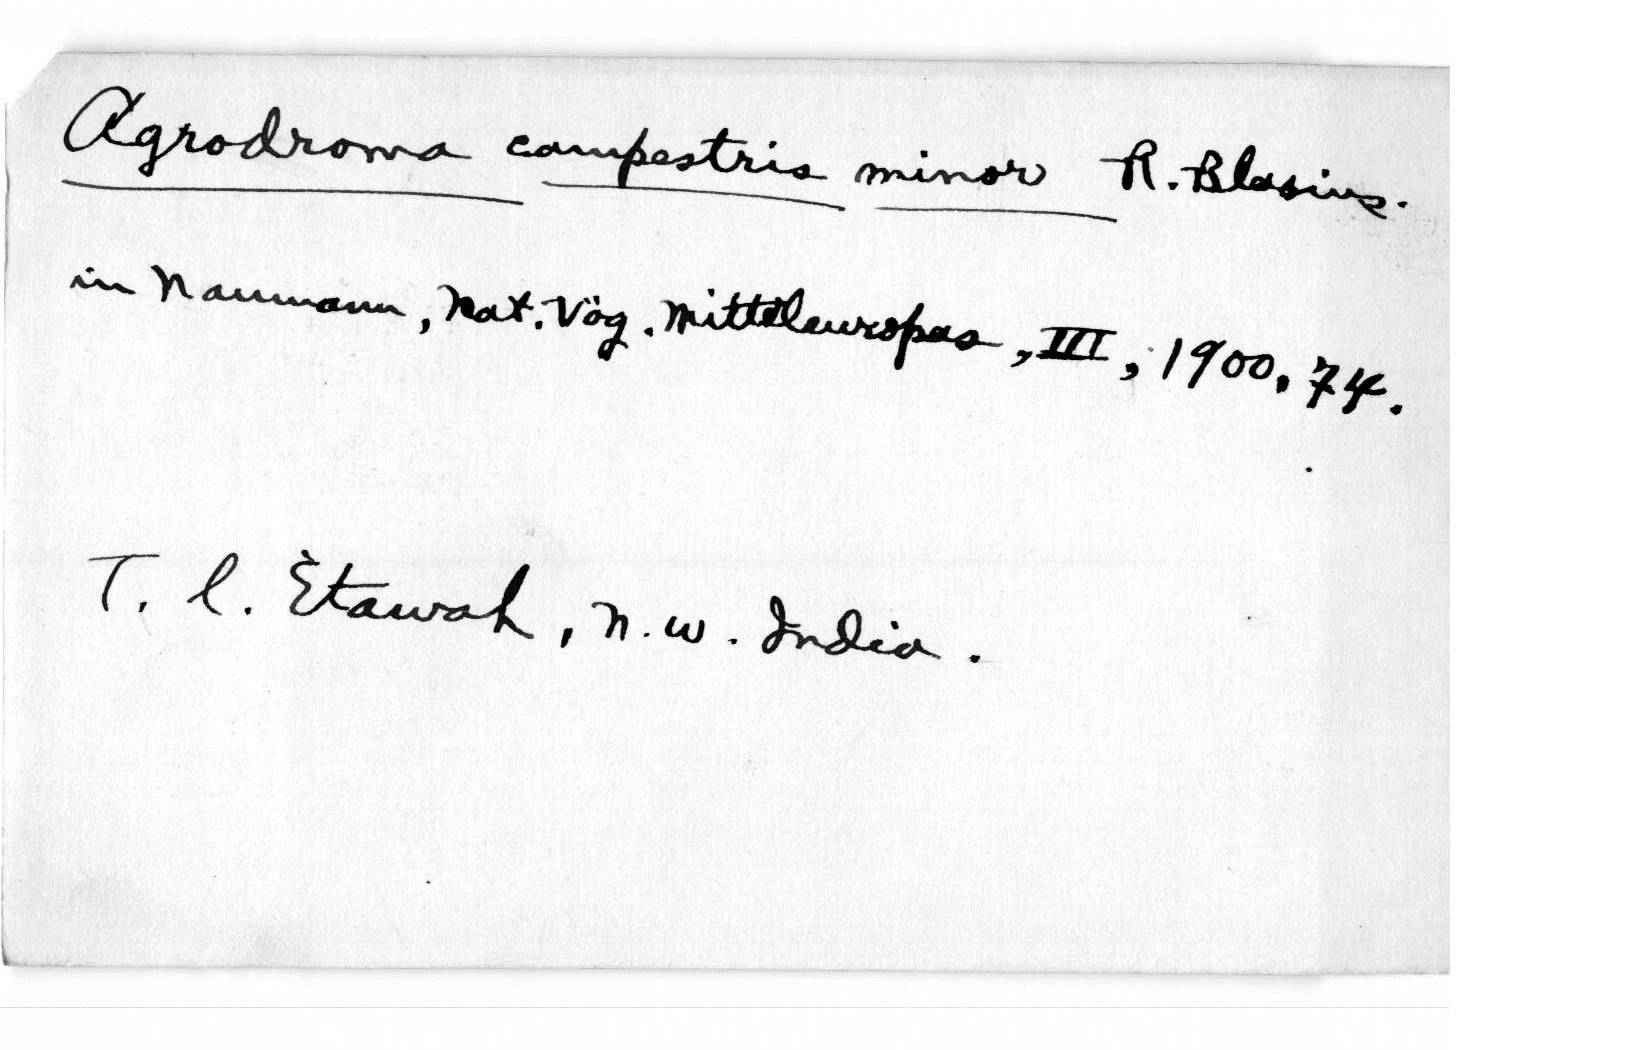 Agrodroma campestris minor R. Blasius.
in Naumann, Nat. Vög. Mitteleuropas, III, 1900, 74.
T. l. Etawah, N.W. India.